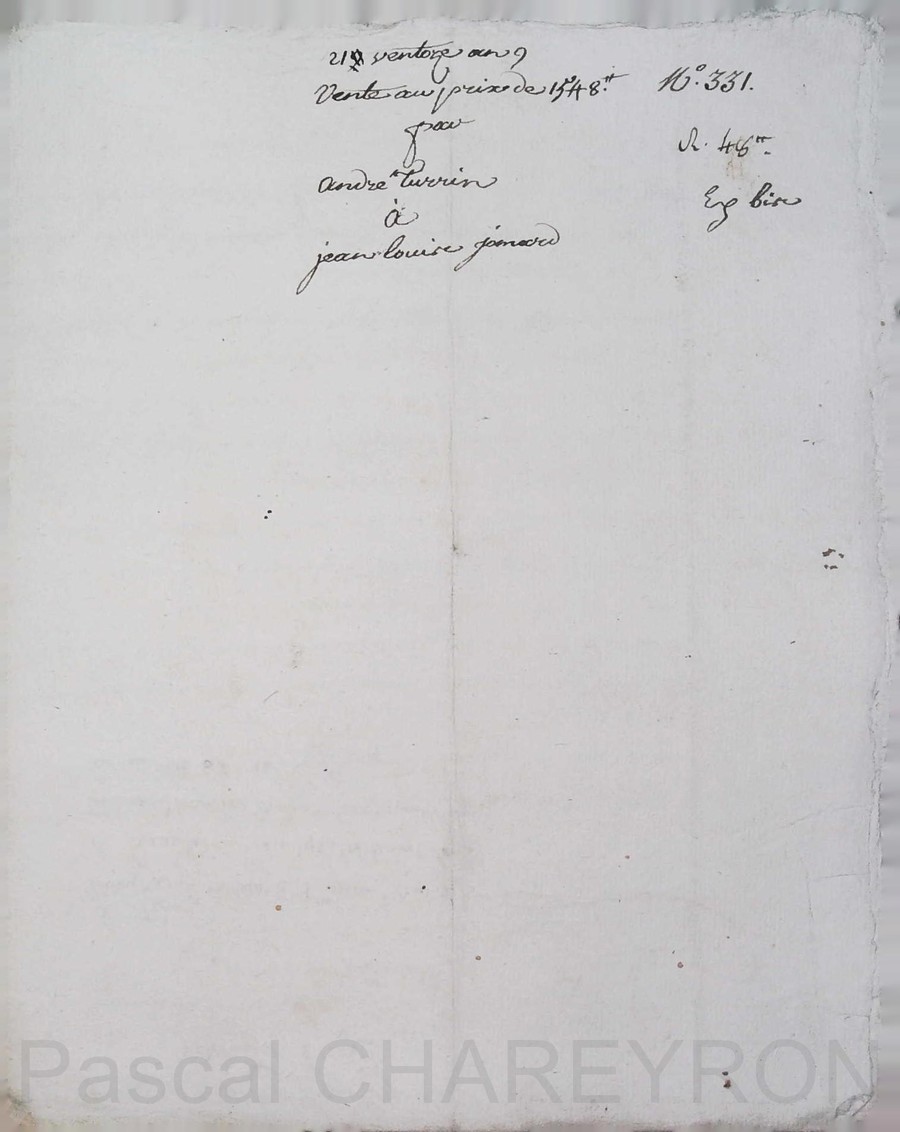 21 ventose an 9
Vente au prix de 1548.tt
par
andré turrin
à
jean louis jamard
N.o 331.
R. 48tt.
Ex bis
Pascal CHAREYRON